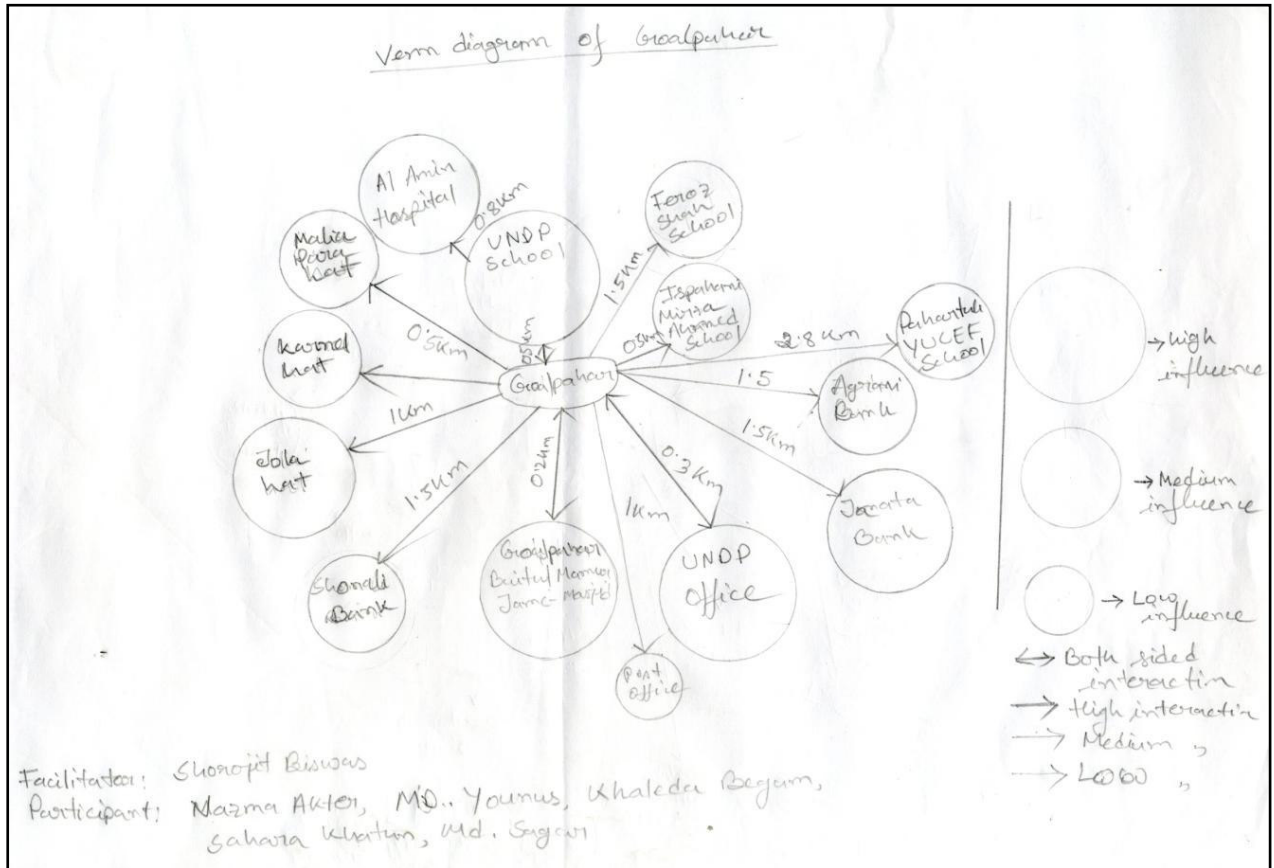 Venn diagram of Goalpahar
Al Amin
Hospital
0.8Km
UNDP
School
Feroz
Shah
School
Malia
Para
hat
1.5Km
Ispahami
Mirza
Ahamed
School
Pahartuli
YUCEF
School
0.5Km
0.5Km
0.5Km
2.8 Km
Karnel
hat
Goalpahar
1.5
Agrani
Bank
1Km
1.5Km
Jolla
hat
1.5Km
0.2Km
0.3Km
1Km
Janata
Bank
Shonali
Bank
Goalpahar
Baitul Mamur
Jame-Masjid
UNDP
Office
Post
Office
→ high
influence
→ Medium
influence
→ Low
influence
↔ Both sided
interactin
→ High interactin
→ Medium "
→ Low "
Facilitator: Shorojit Biswas
Participant: Nazma Akter, MD.. Younus, Khaleda Begum,
Sahara Khatun, Md. Sagar